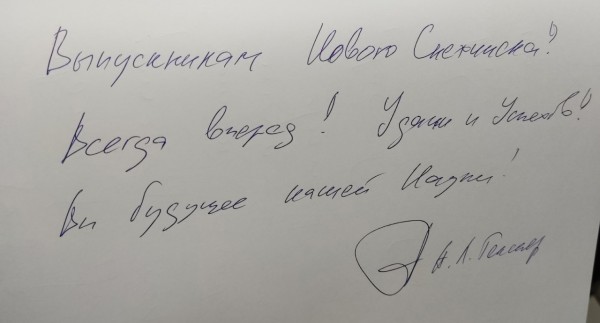 Выпускникам Нового Снежинска!
Всегда вперед! Удачи и Успехов!
Вы будущее нашей Науки!
А. Л.